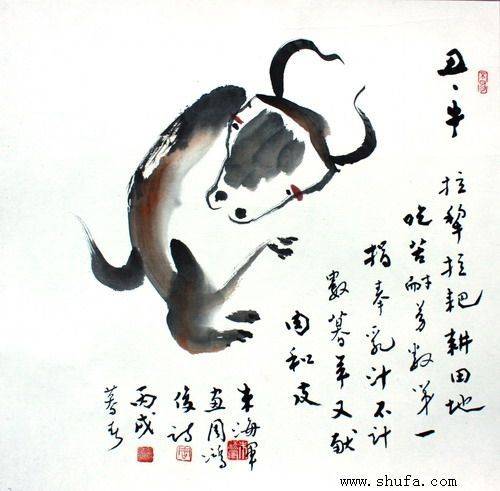 丑、牛
拉犁拉耙耕田地
吃苦耐劳数第一
捐奉乳汁不计
数暮年又献
肉和皮
朱海
画周鸿
俊诗
丙戌
暮春
www.shufa.com